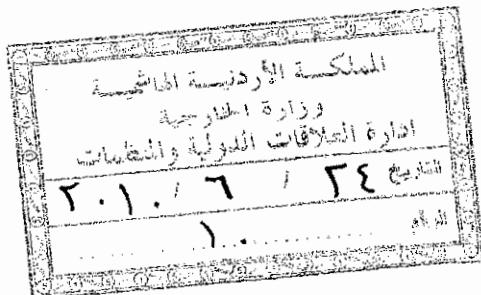 المملكة الأردنية الهاشمية
وزارة الخارجية
ادارة العلاقات الدولية والمنظمات
التاريخ ٢٤ / ٦ / ٢٠١٠
الرقم ١٠